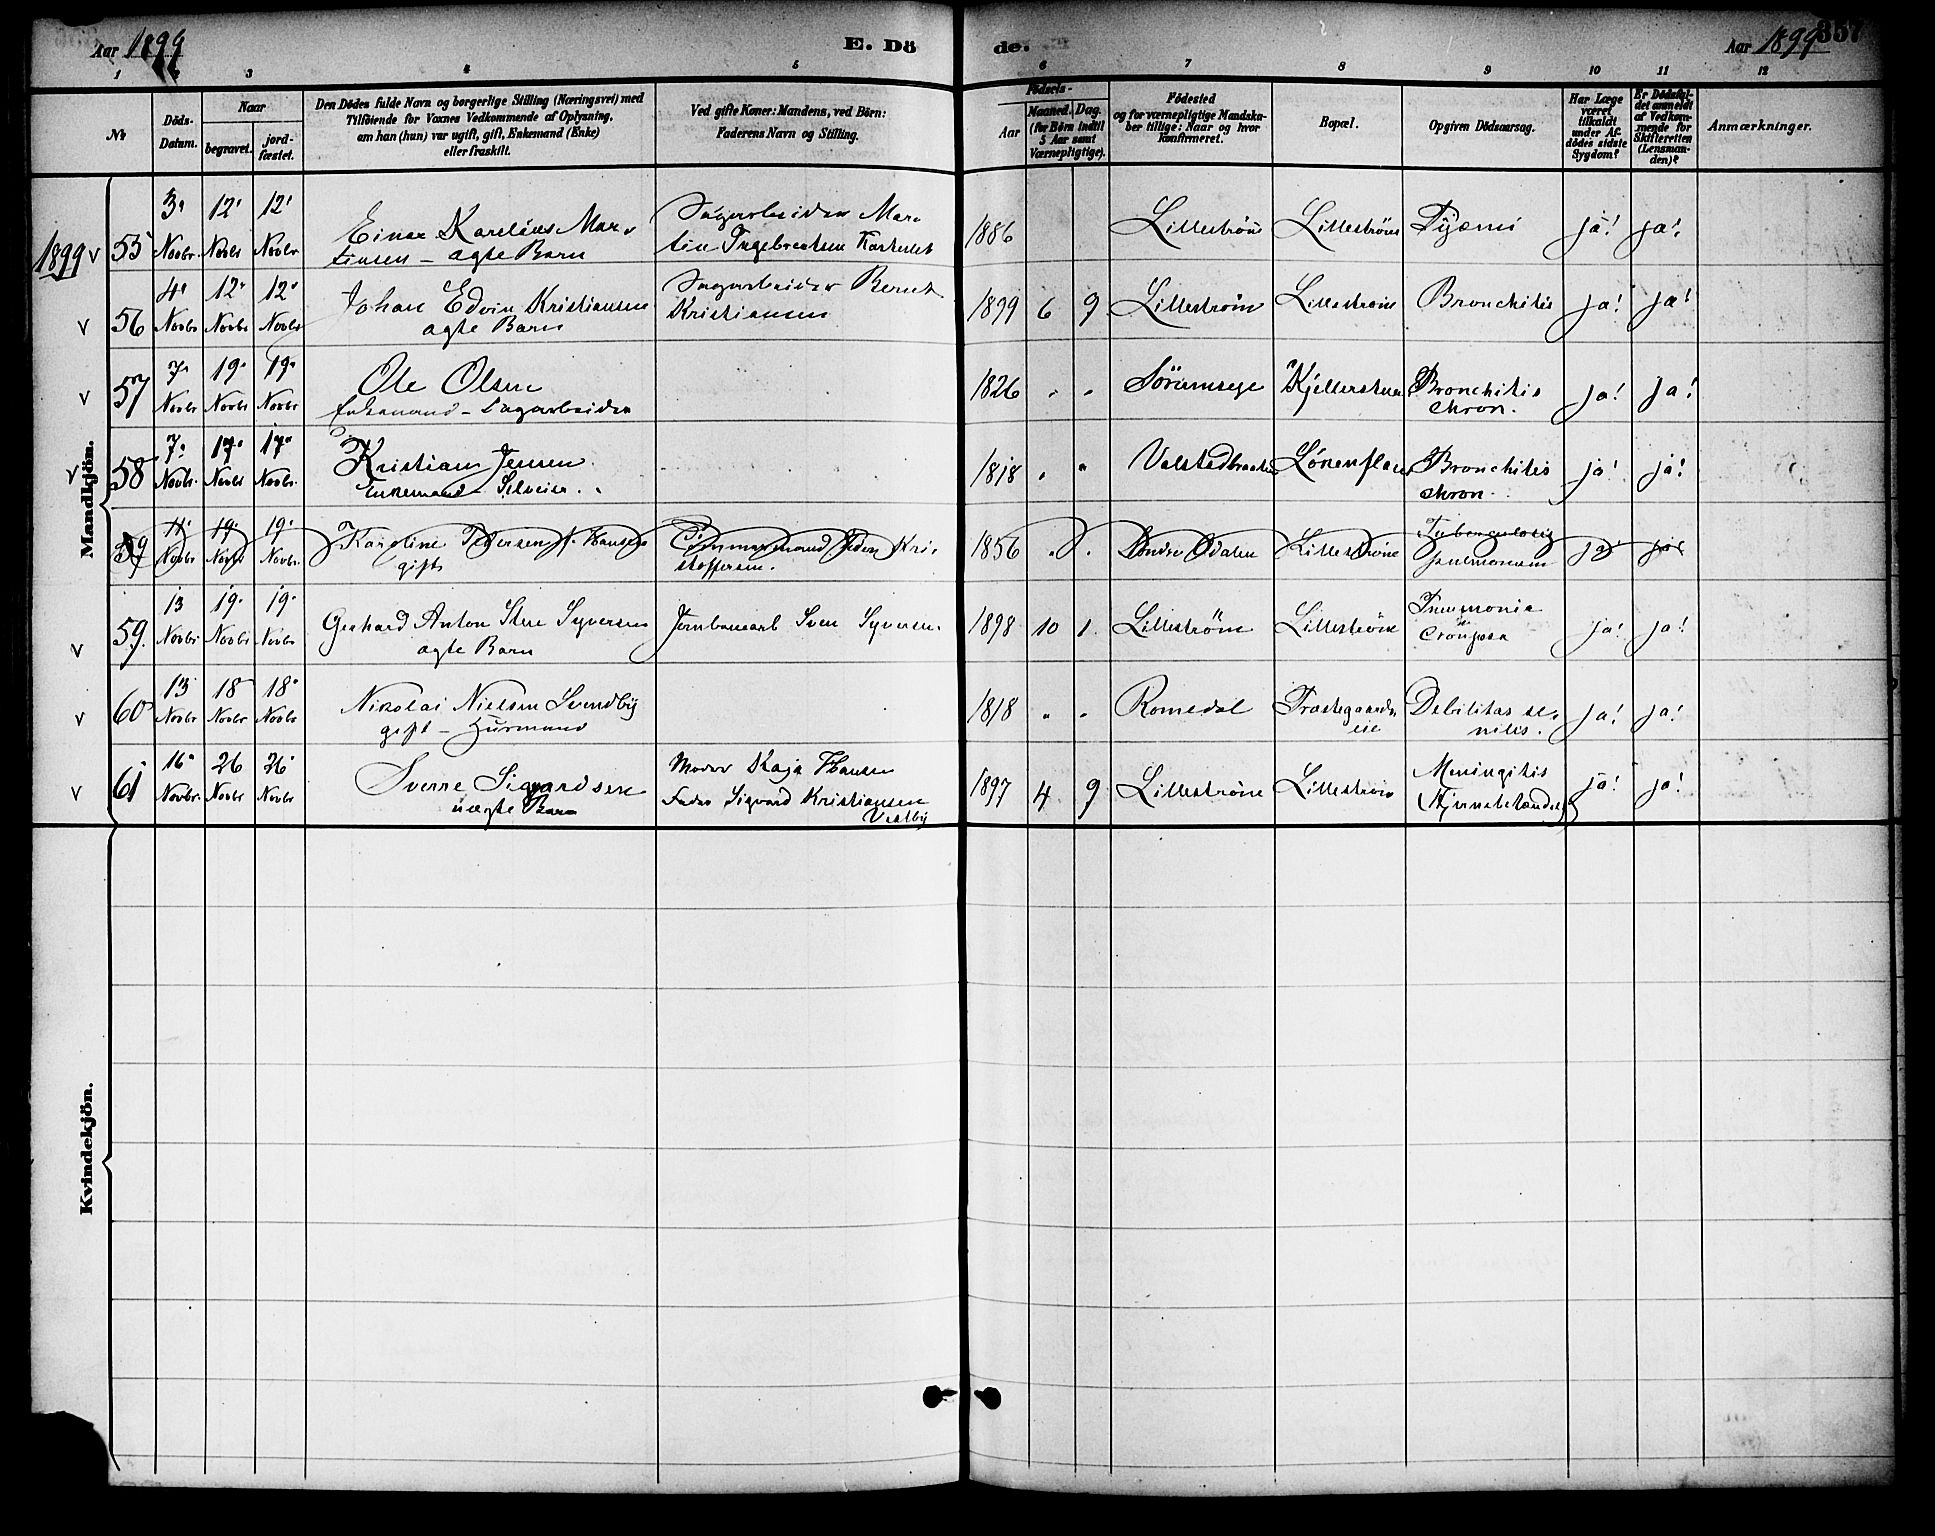 Aar 1899
E. Dö
de.
Aar 1899
357
1 2 3 4 5 6 7 8 9 10 11 12
No
Döds-
Datum.
Naar
begravet.
jord-
fæstet.
Den Dödes fulde Navn og borgerlige Stilling (Næringsvei) med
Tilföiende for Voxnes Vedkommende af Oplysning,
om han (hun) var ugift, gift, Enkemand (Enke)
eller fraskilt.
Ved gifte Koner: Mandens, ved Börn:
Faderens Navn og Stilling.
Födsels-
Aar
Maaned.
Dag.
(for Börn indtil
5 Aar samt
Værnepligtige).
Födested
og for værnepligtige Mandska-
ber tillige: Naar og hvor
konfirmeret.
Bopæl.
Opgiven Dödsaarsag.
Har Læge
været
tilkaldt
under Af-
dödes sidste
Sygdom?
Er Dödsfal-
det anmeldt
af Vedkom-
mende for
Skifteretten
(Lensman-
den)?
Anmærkninger.
Mandkjön.
1899
55 3. Novbr. 12. Novbr 12. Novbr
Einar Karelius Mar-
tinsen – ægte Barn
Sagarbeider Mar-
tin Ingebretsen
1886 Lilleström Lilleström Pyæmi ja! ja!
56 4. Novbr 12. Novbr 12. Novbr
Johan Edvin Kristiansen
ægte Barn
Sagarbeider Bernt
Kristiansen
1899 6 9 Lilleström Lilleström Bronchitis ja! ja!
57 7. Novbr 19. Novbr 19. Novbr
Ole Olsen
Enkemand – Sagarbeider
1826 " " Kjellerstuen Bronchitis
chron. ja! ja!
58 7. Novbr. 17. Novbr 17. Novbr.
Kristian Jensen
Enkemand – Selveier
1818 " " Bronchitis
chron. ja! ja!
59 11. Novbr 19. Novbr 19. Novbr.
Karoline Pedersen f. Hansen
gift
Tømmermand Peder Kri-
stoffersen.
1856 " " Søndre Odalen Lilleström Tuberculosis
pulmonum ja! ja!
59. 13 Novbr 19. Novbr 19. Novbr
Gerhard Anton Syversen
ægte Barn
Jernbanearb Sven Syversen.
1898 10 1. Lilleström Lilleström Pneumonia
crouposa ja! ja!
60 13 Novbr 18 Novbr 18. Novbr
Nikolai Nielsen Svendby
gift – Husmand
1818 " " Romedal Præstegaards
eie Debilitas se-
nilis. ja! ja!
61 16. Novbr. 26 Novbr 26. Novbr
Sverre Sigvardsen
uægte Barn
Moder Kaja Hansen
Fader Sigvard Kristiansen
Vestby
1897 4 9 Lilleström Lilleström Meningitis
ja! ja!
Kvindekjön.